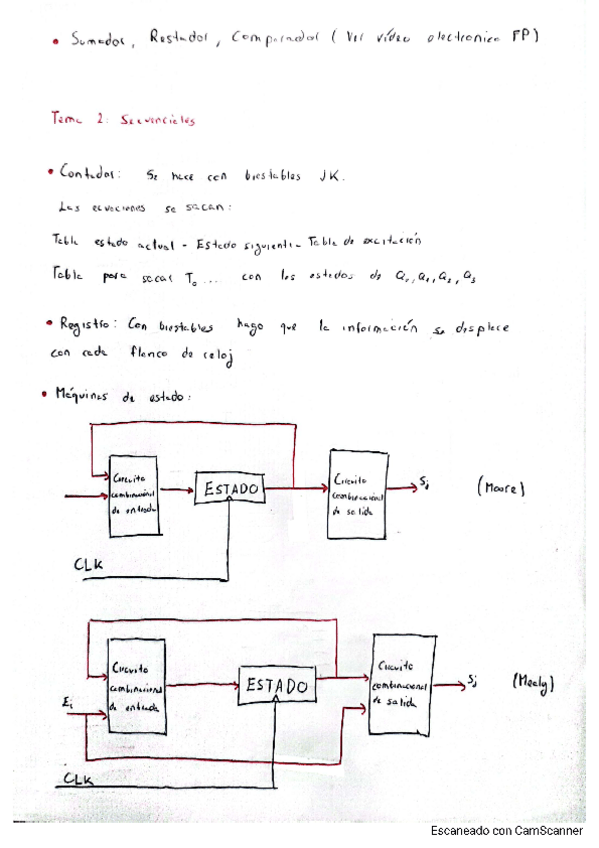 • Sumador, Restador, Comparador ( Ver vídeo electronica FP)
Tema 2: Secuenciales
• Contador: Se hace con biestables JK.
Las ecuaciones se sacan:
Tabla estado actual - Estado siguiente - Tabla de excitación
Tabla para sacar T₀ ... con los estados de Q₀, Q₁, Q₂, Q₃
• Registro: Con biestables hago que la información se desplace
con cada flanco de reloj
• Máquinas de estado:
Circuito
combinacional
de entrada
ESTADO
Circuito
combinacional
de salida
Sj
(Moore)
CLK
Ei
Circuito
combinacional
de entrada
ESTADO
Circuito
combinacional
de salida
Sj
(Mealy)
CLK
Escaneado con CamScanner